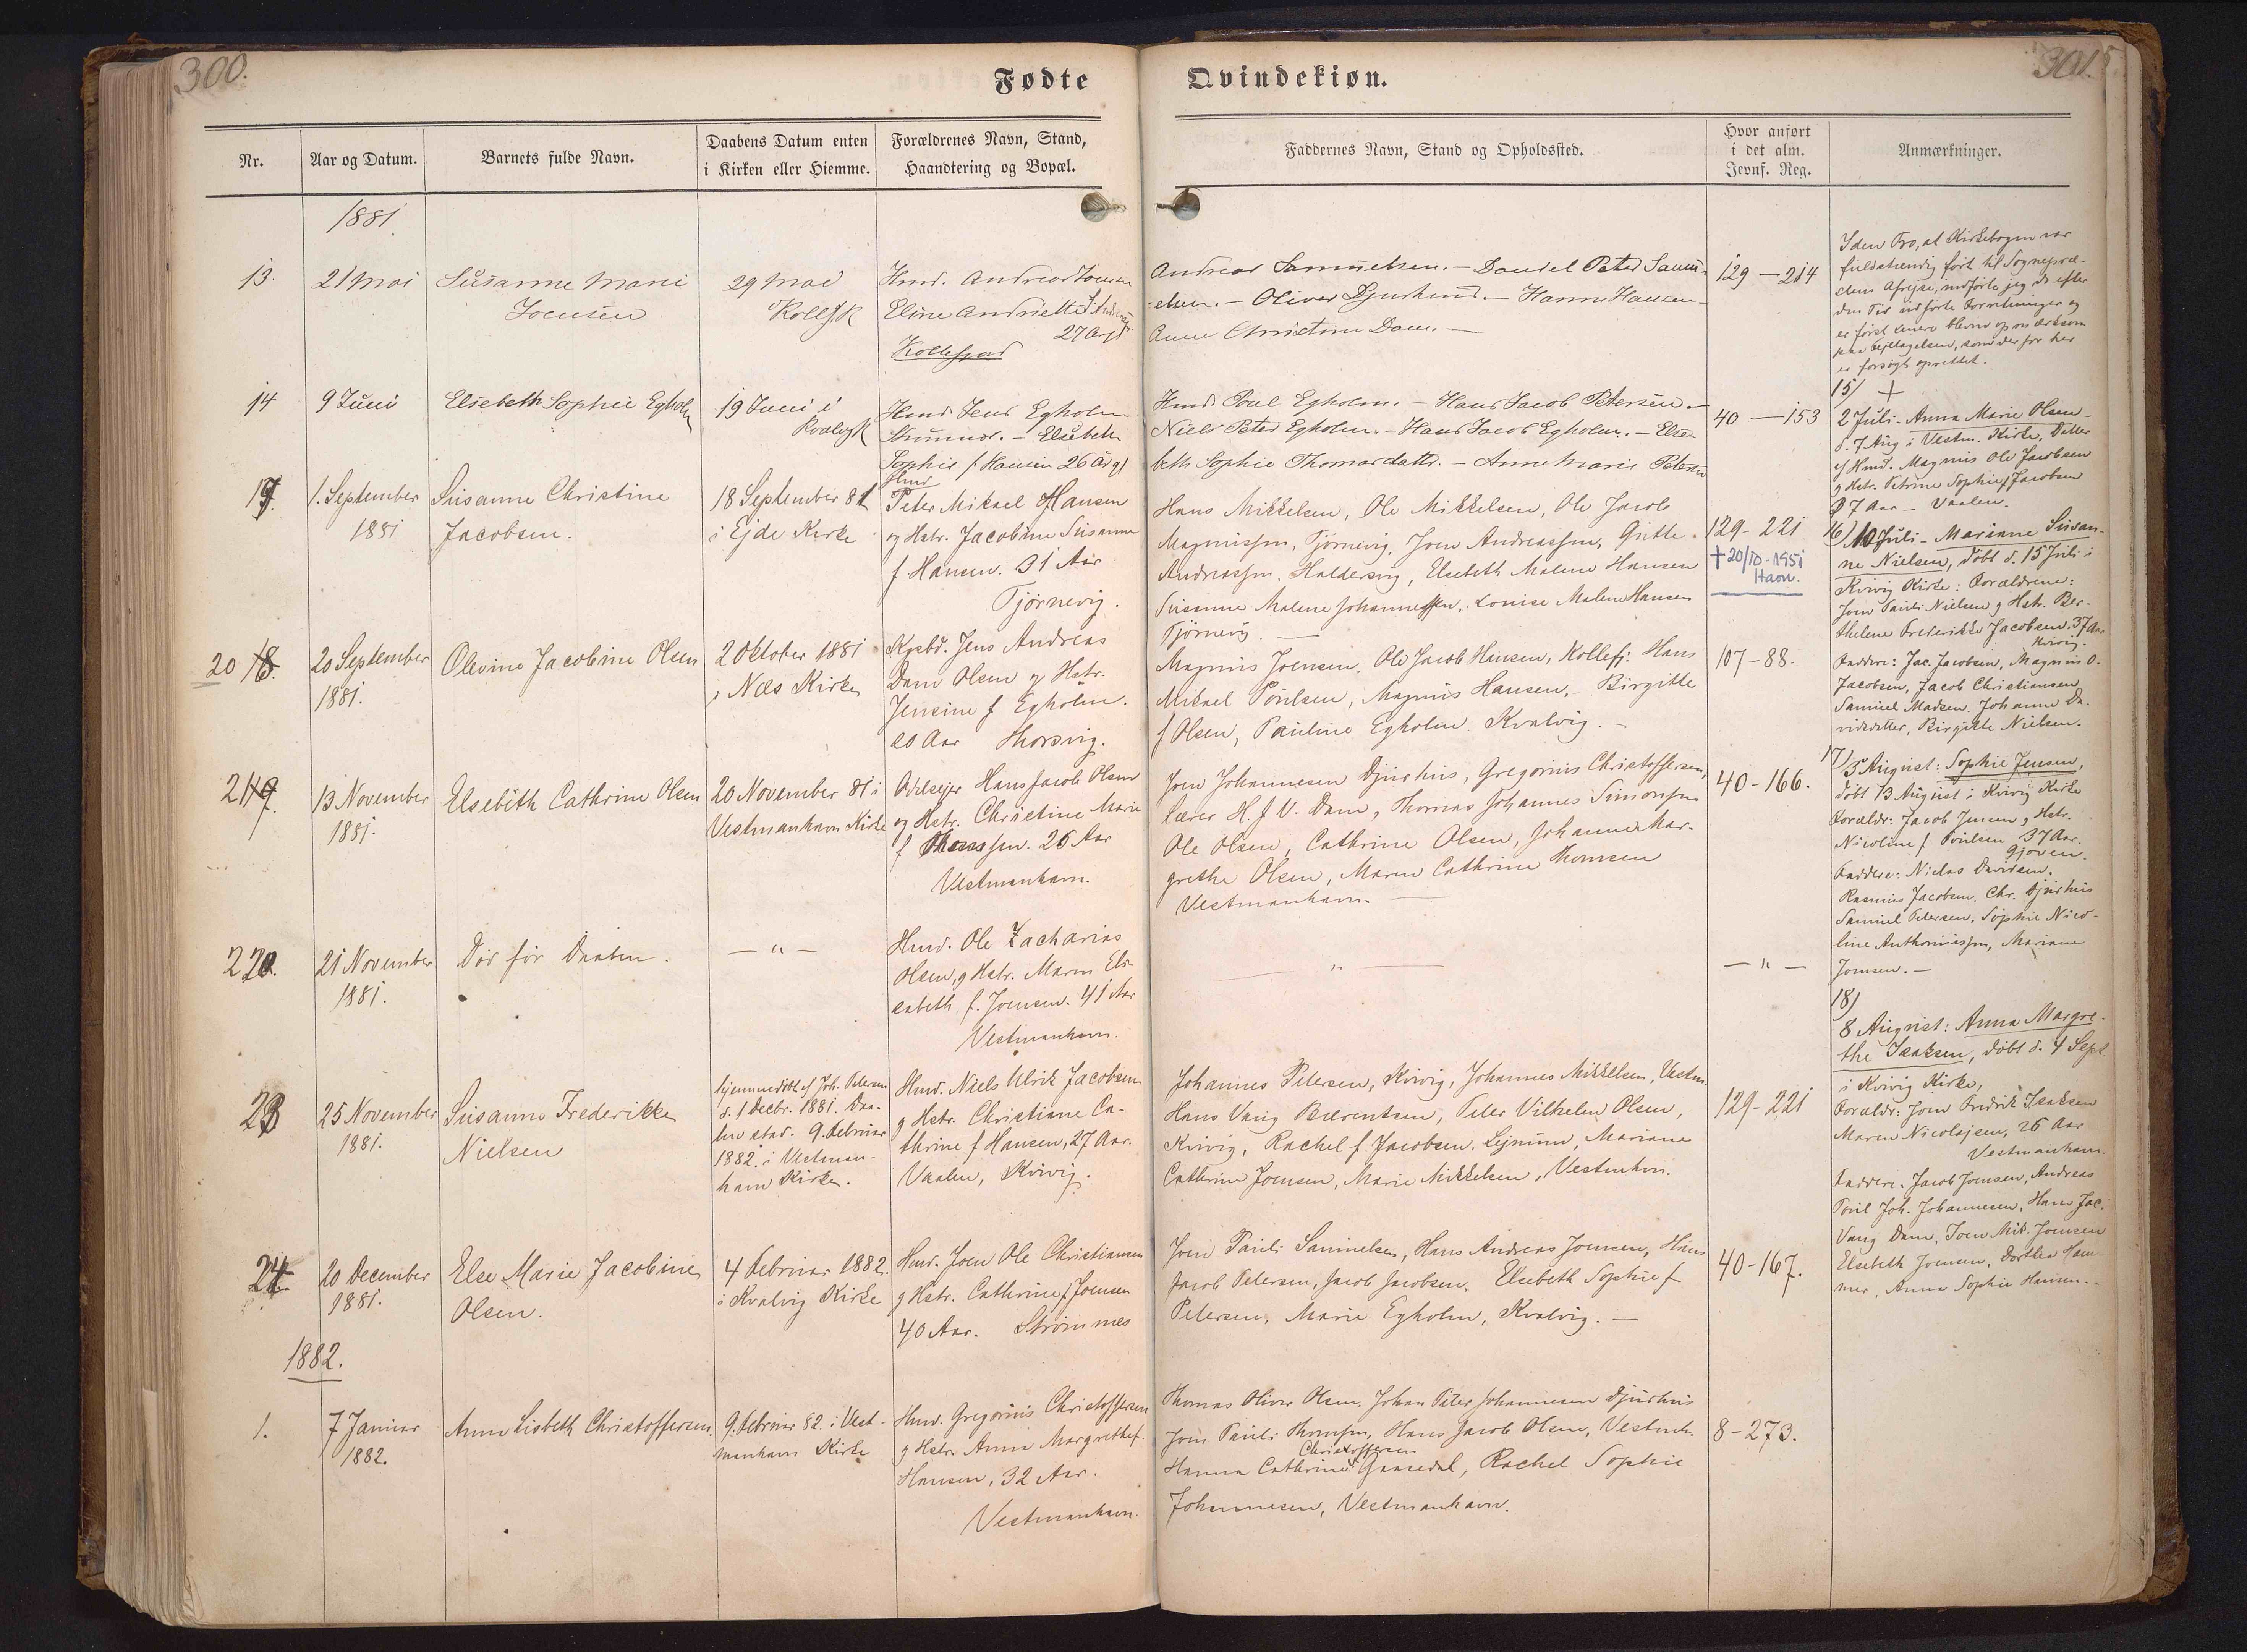 300.
Fødte
Nr.
Aar og Datum.
Barnets fulde Navn.
Daabens Datum enten
i Kirken eller Hiemme.
Forældrenes Navn, Stand,
Haandtering og Bopæl.
1881.
13.
21 Mai
Susanne Marie
Joensen
29 Mai
Kollfk
Hmd. Andreas Joensen
Eline Andriette
27 Aar
Kollefjord
14
9 Juni
Elsebeth Sophie Egholm
19 Juni i
Kvalvgk
Hmd Jens Egholm
Strømnæs. - Elsebeth
Sophie f Hansen 26 Aar
19.
1. September
1881
Susanne Christine
Jacobsen.
18 September 81
i Ejde Kirke
Hmd
Peter Mikael Hansen
og Hstr. Jacobine Susanne
f. Hansen. 31 Aar
Tjørnevig.
20 18.
20 September
1881.
Olevine Jacobine Olsen
2 Oktober 1881
i Næs Kirke
Jens Andreas
Dam Olsen og Hstr.
Jensine f Egholm.
20 Aar Thorsvig.
21 19.
13 November
1881.
Elsebeth Cathrine Olsen
20 November 81 i
Vestmanhavn Kirke
Odelsejer Hans Jacob Olsen
og Hstr. Christine Marie
f Thomsen. 26 Aar
Vestmanhavn.
22 20.
21 November
1881.
Død før Daaben.
— " —
Hmd. Ole Zacharias
Olsen, og Hstr. Maren Eli-
sabeth f. Joensen. 41 Aar
Vestmanhavn.
23
25 November
1881.
Susanne Frederikke
Nielsen
hjemmedøbt af Joh. Petersen
d. 1 Decbr. 1881. Daa-
ben stad. 9. Februar
1882. i Vestman-
havn Kirke.
Hmd. Niels Ulrik Jacobsen
og Hstr. Christiane Ca-
thrine f Hansen, 27 Aar.
Vaalen, Kvivig.
24
20 December
1881.
Else Marie Jacobine
Olsen.
4 Februar 1882.
i Kvalvig Kirke
Hmd. Joen Ole Christiansen
og Hstr. Cathrine f Joensen
40 Aar. Strømnæs
1882.
1.
7 Januar
1882.
Anna Lisbeth Christoffersen.
9. Februar 82. i Vest-
manhavn Kirke
Hmd. Gregorius Christoffersen
og Hstr. Anna Margrethe f.
Hansen, 32 Aar.
Vestmanhavn.
301.
Qvindekiøn.
Faddernes Navn, Stand og Opholdssted.
Hvor anført
i det alm.
Jevnf. Reg.
Anmærkninger.
Andreas Samuelsen. - Daniel Peter Samu-
elsen. - Oliver Djurhuus. - Hanne Hansen -
Anne Christine Dam. —
129 — 214
Hmd Poul Egholm. - Hans Jacob Petersen. -
Niels Peter Egholm. - Hans Jacob Egholm. - Else-
beth Sophie Thomasdatter. - Anne Marie Petersen
40 — 153
Hans Mikkelsen, Ole Mikkelsen, Ole Jacob
Magnussen, Tjørnevig, Joen Andreassen, Gritte
Andreassen, Haldersvig, Elsebeth Malene Hansen
Susanne Malene Johannessen, Louise Malene Hansen
Tjørnevig. —
129 - 221
† 20/10 - 1951
Havn.
Magnus Joensen, Ole Jacob Hansen, Kollefj. Hans
Mikael Poulsen, Magnus Hansen, Birgitte
f Olsen, Pauline Egholm. Kvalvig. -
107 - 88.
Joen Johannesen Djurhuus, Gregorius Christoffersen,
Lærer H. J. V. Dam, Thomas Johannes Simonsen
Ole Olsen, Cathrine Olsen, Johanne Mar-
grethe Olsen, Maren Cathrine Thomsen
Vestmanhavn. —
40 - 166.
— " —
— " —
Johannes Petersen, Kvivig, Johannes Mikkelsen, Vestm.
Hans Vang Berentsen, Peter Vilhelm Olsen,
Kvivig, Rachel f Jacobsen. Lejnum, Mariane
Cathrine Joensen, Marie Mikkelsen, Vestmhvn.
129 - 221
Joen Pauli Samuelsen, Hans Andreas Joensen, Hans
Jacob Petersen, Jacob Jacobsen, Elsebeth Sophie f
Petersen, Marie Egholm, Kvalvig. —
40 - 167.
Thomas Oliver Olsen, Johan Peter Johannesen Djurhuus
Joen Pauli Thomsen, Hans Jacob Olsen, Vestmh.
Christoffersen
Hanna Cathrine Gaasedal, Rachel Sophie
Johannesen, Vestmanhavn.
8 - 273.
I den Tro, at Kirkebogen var
fuldstændig ført til Sognepræ-
stens Afrejse, indførte jeg de efter
den Tid udførte Forretninger og
er først senere bleven opmærksom
paa Fejltagelsen, som derfor her
er forsøgt oprettet.
15) †
2 Juli - Anna Marie Olsen -
d. 7 Aug i Vestm. Kirke, Datter
af Hmd. Magnus Ole Jacobsen
og Hstr. Petrine Sophie f Jacobsen
37 Aar - Vaalen.
16) 10 Juli - Mariane Susan-
ne Nielsen, døbt d. 15 Juli i
Kvivig Kirke: Forældrene:
Joen Pauli Nielsen og Hstr. Ber-
thelene Frederikke Jacobsen. 37 Aar
Kvivig.
Faddere: Jac. Jacobsen, Magnus O.
Jacobsen, Jacob Christiansen
Samuel Madsen. Johanne Da-
vidsdatter, Birgitte Nielsen.
17)
5 August: Sophie Jensen,
døbt 13 August i Kvivig Kirke
Forældr: Jacob Jensen og Hstr.
Nicoline f Poulsen 37 Aar.
Gjøven.
Faddere: Niclas Davidsen.
Rasmus Jacobsen. Chr. Djurhuus
Samuel Petersen, Sophie Nico-
line Anthoniussen, Mariane
Joensen. —
18)
8 August: Anna Margre-
the Isaksen, døbt d. 4 Sept.
i Kvivig Kirke,
Forældr: Joen Fredrik Isaksen
Maren Nicolajsen, 26 Aar
Vestmanhavn.
Faddere. Jacob Joensen, Andreas
Poul Joh. Johannesen, Hans Jac.
Vang Dam, Joen Mik. Joensen
Elsebeth Joensen, Dorthea Ham-
mer, Anna Sophie Hansen. -